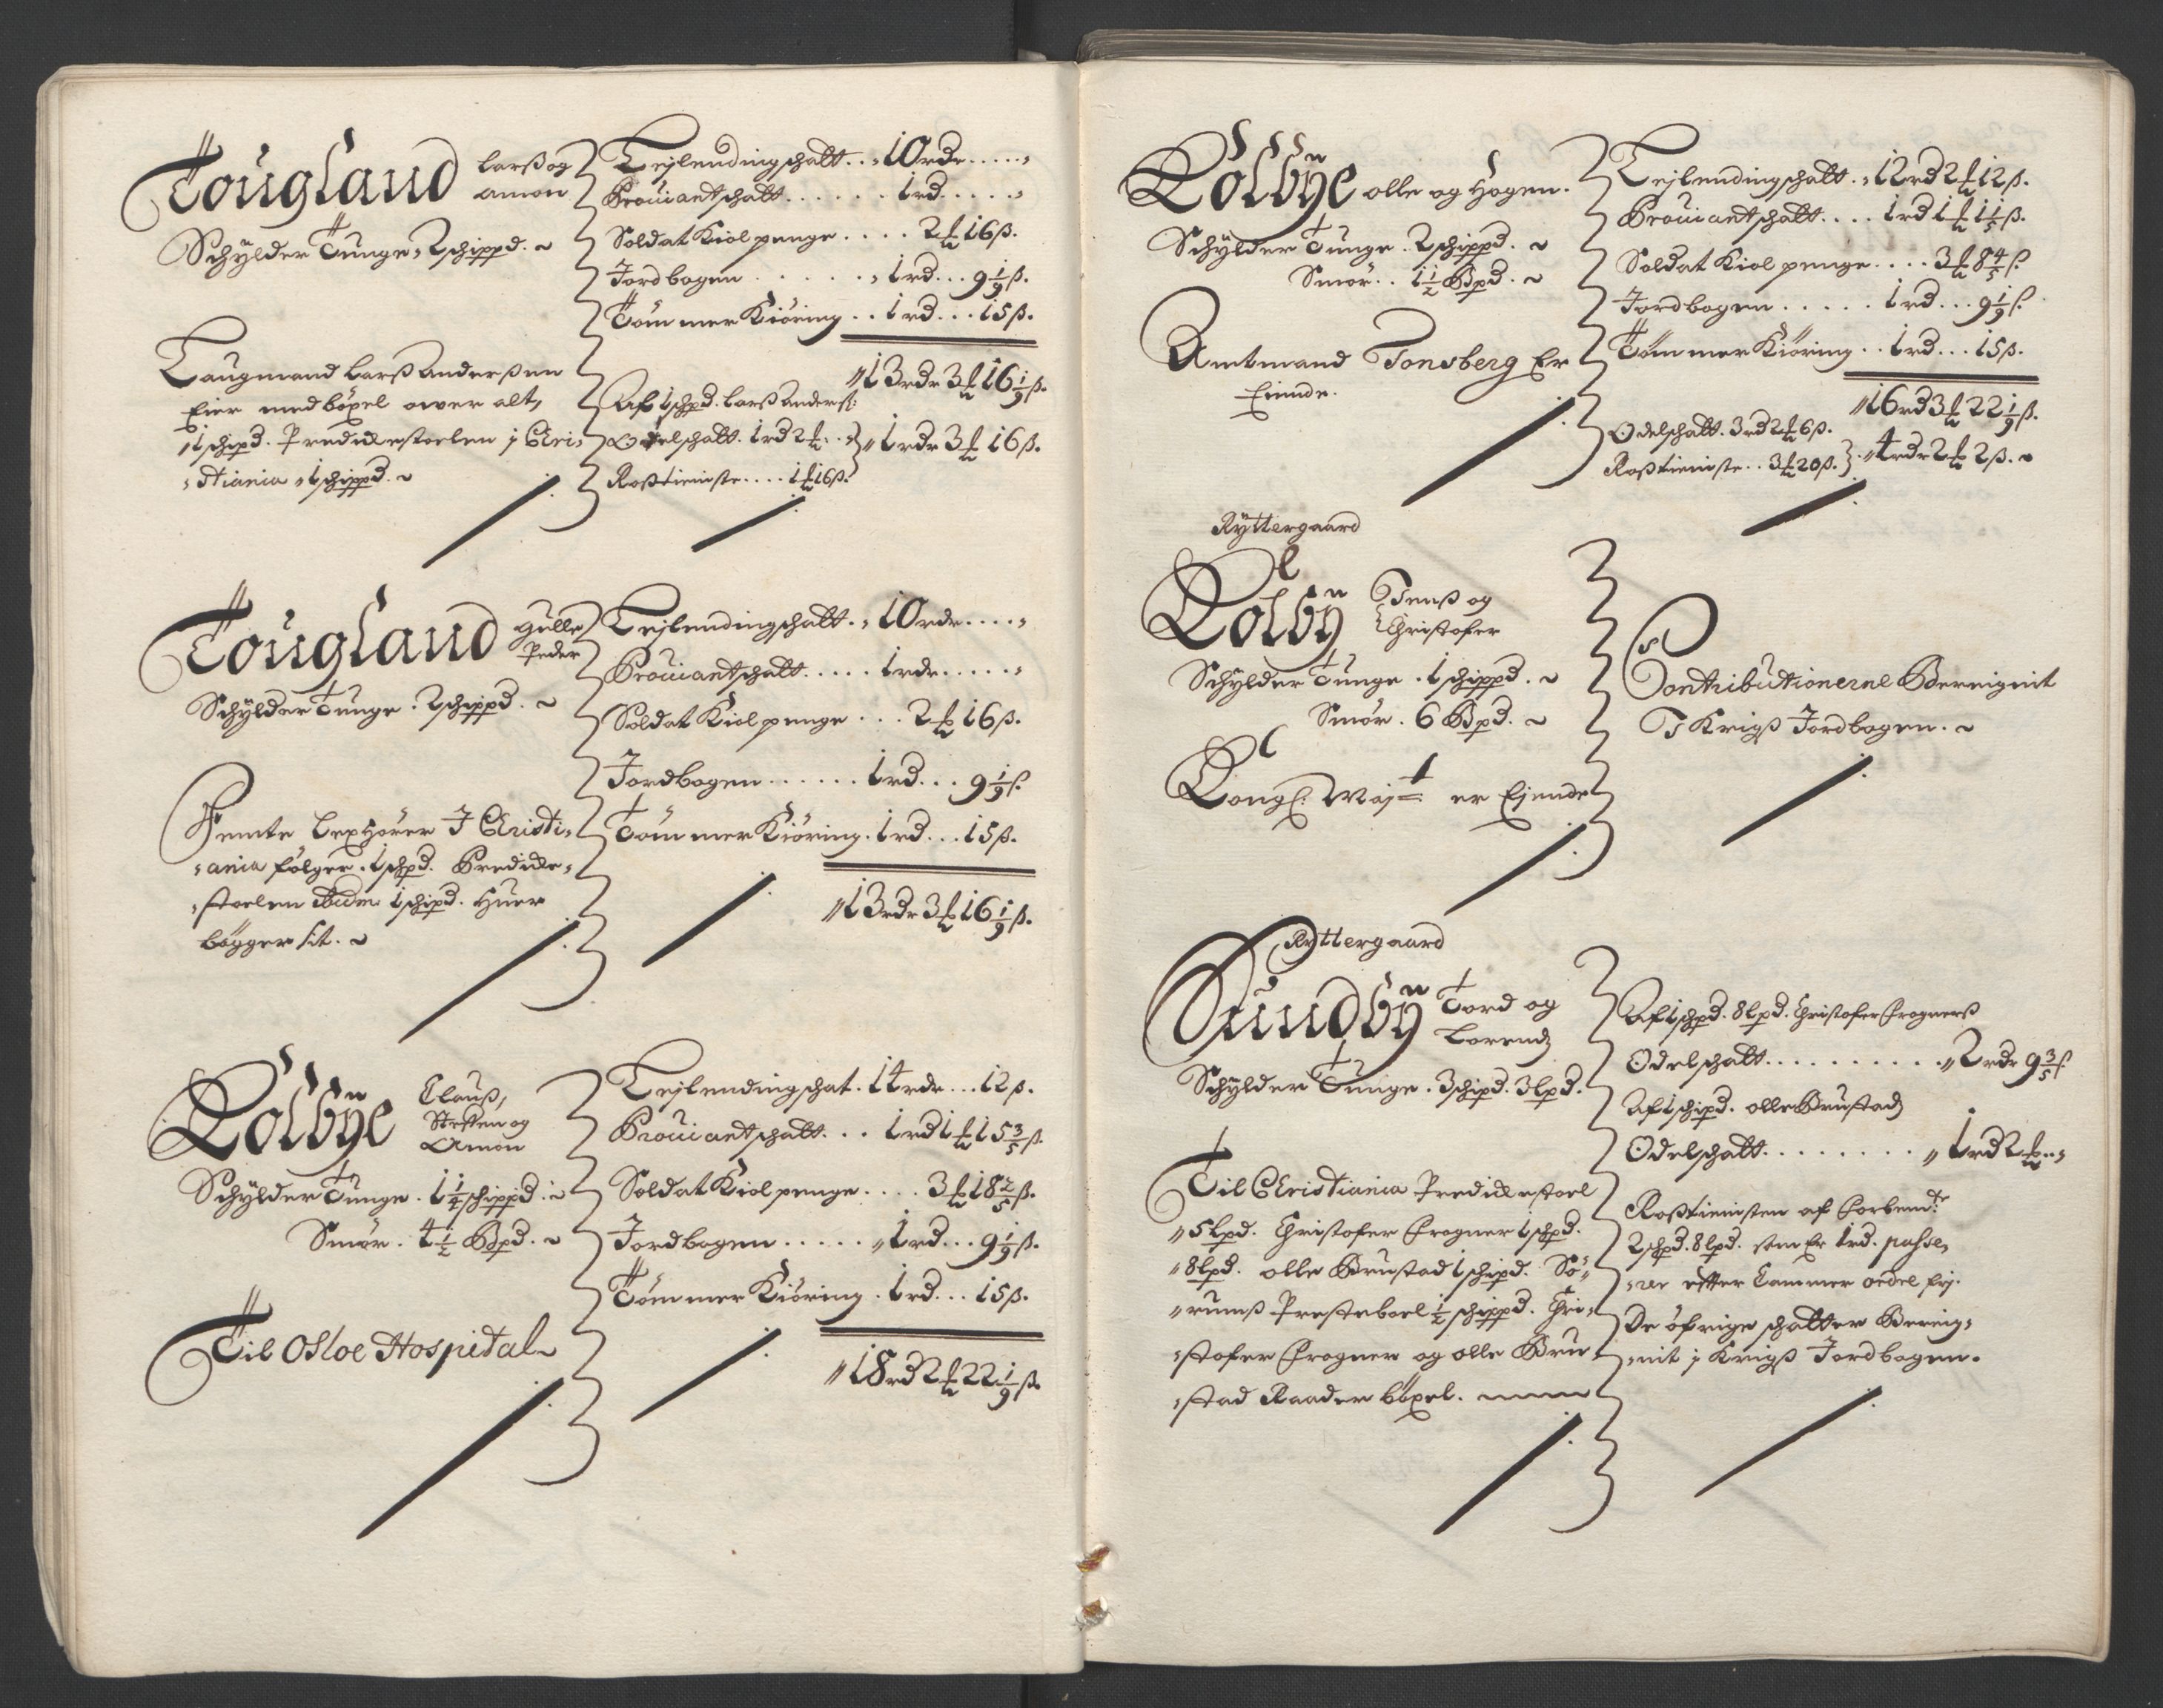 Tougland Larß og
Amon
Schylder Tunge 2 schippd.
Laugmand Larß Anderßen
Eier med böxel ower alt,
1 schipd. Predichestoelen j Chri-
stiania 1 schippd.
Lejlendingschatt.. 10 rdr.....
Proviantschatt...... 1 rd.....
Soldat Kiolpenge.... 2 ℔ 16 ß.
Jordbogen...... 1 rd... 9 1/9 ß.
Tömmer Kiöring.. 1 rd... 15 ß.
13 rdr 3 ℔ 16 1/9 ß.
Af 1 schpd. Larß Anderß:
Odelschatt. 1 rd 2 ℔..
Roßtieniste.... 1 ℔ 16 ß.
1 rdr 3 ℔ 16 ß.
Tougland Gulle
Peder
Schylder Tunge. 2 schippd.
Femte Lexhörer I Christi-
ania fölger. 1 schpd. Prediche-
stoelen ibidm: 1 schipd. Huer
bögger sit.
Lejlendingschatt. 10 rdr....
Proviantschatt..... 1 rdr.....
Soldat Kiolpenge... 2 ℔ 16 ß.
Jordbogen...... 1 rd... 9 1/9 ß.
Tömmer Kiöring. 1 rd... 15 ß.
13 rdr 3 ℔ 16 1/9 ß.
Kolbye Clauß,
Steffen og
Amon
Schylder Tunge. 1 1/4 schippd.
Smör. 4 1/2 Bpd.
Til Osloe Hospital
Lejlendingschat. 14 rdr... 12 ß.
Proviantschatt... 1 rd 1 ℔ 15 3/5 ß.
Soldat Kiolpenge.... 3 ℔ 18 2/5 ß.
Jordbogen..... 1 rd... 9 1/9 ß.
Tömmer Kiöring. 1 rd... 15 ß.
18 rd 2 ℔ 22 1/9 ß.
Kolbye olle og Hogen.
Schylder Tunge. 2 schippd.
Smör.. 1 1/2 Bpd.
Amtmand Tonsberg Er
Eiende.
Lejlendingschatt. 12 rd 2 ℔ 12 ß.
Proviantschatt.... 1 rd 1 ℔ 1 1/5 ß.
Soldat Kiolpenge.... 3 ℔ 8 4/5 ß.
Jordbogen..... 1 rd... 9 1/9 ß.
Tömmer Kiöring.. 1 rd... 15 ß.
16 rd 3 ℔ 22 1/9 ß.
Odelschatt. 3 rd 2 ℔ 6 ß.
Roßtieniste.. 3 ℔ 20 ß.
4 rdr 2 ℔ 2 ß.
Ryttergaard
Kolby Jenß og
Christofer
Schylder Tunge. 1 schippd.
Smör. 6 Bpd.
Kongl: Majt er Ejende
Contributionerne Beregnit
I Krigß Jordbogen.
Ryttergaard
Sundby Tord og
Lorendz
Schylder Tunge. 3 schipd. 3 lpd.
Til Christiania Predichestoel
5 lpd. Christofer Frogner 1 schpd.
8 lpd. olle Brustad 1 schipd. Sö-
rumß Presteboel 1/2 schippd. Chri-
stofer Frogner og olle Bru-
stad Raader böxel.
Af 1 schpd. 8 lpd. Christofer Frogners
Odelschatt.......... 2 rdr 9 3/5 ß
Af 1 schipd. olle Brustadz
Odelschatt........ 1 rd 2 ℔..
Roßtienisten af Forbemte
2 schpd. 8 lpd. som Er 1 rd. passe-
rer effter Cammer ordre frj.
De öfrige schatter Bereig-
nit j Krigß Jordbogen.